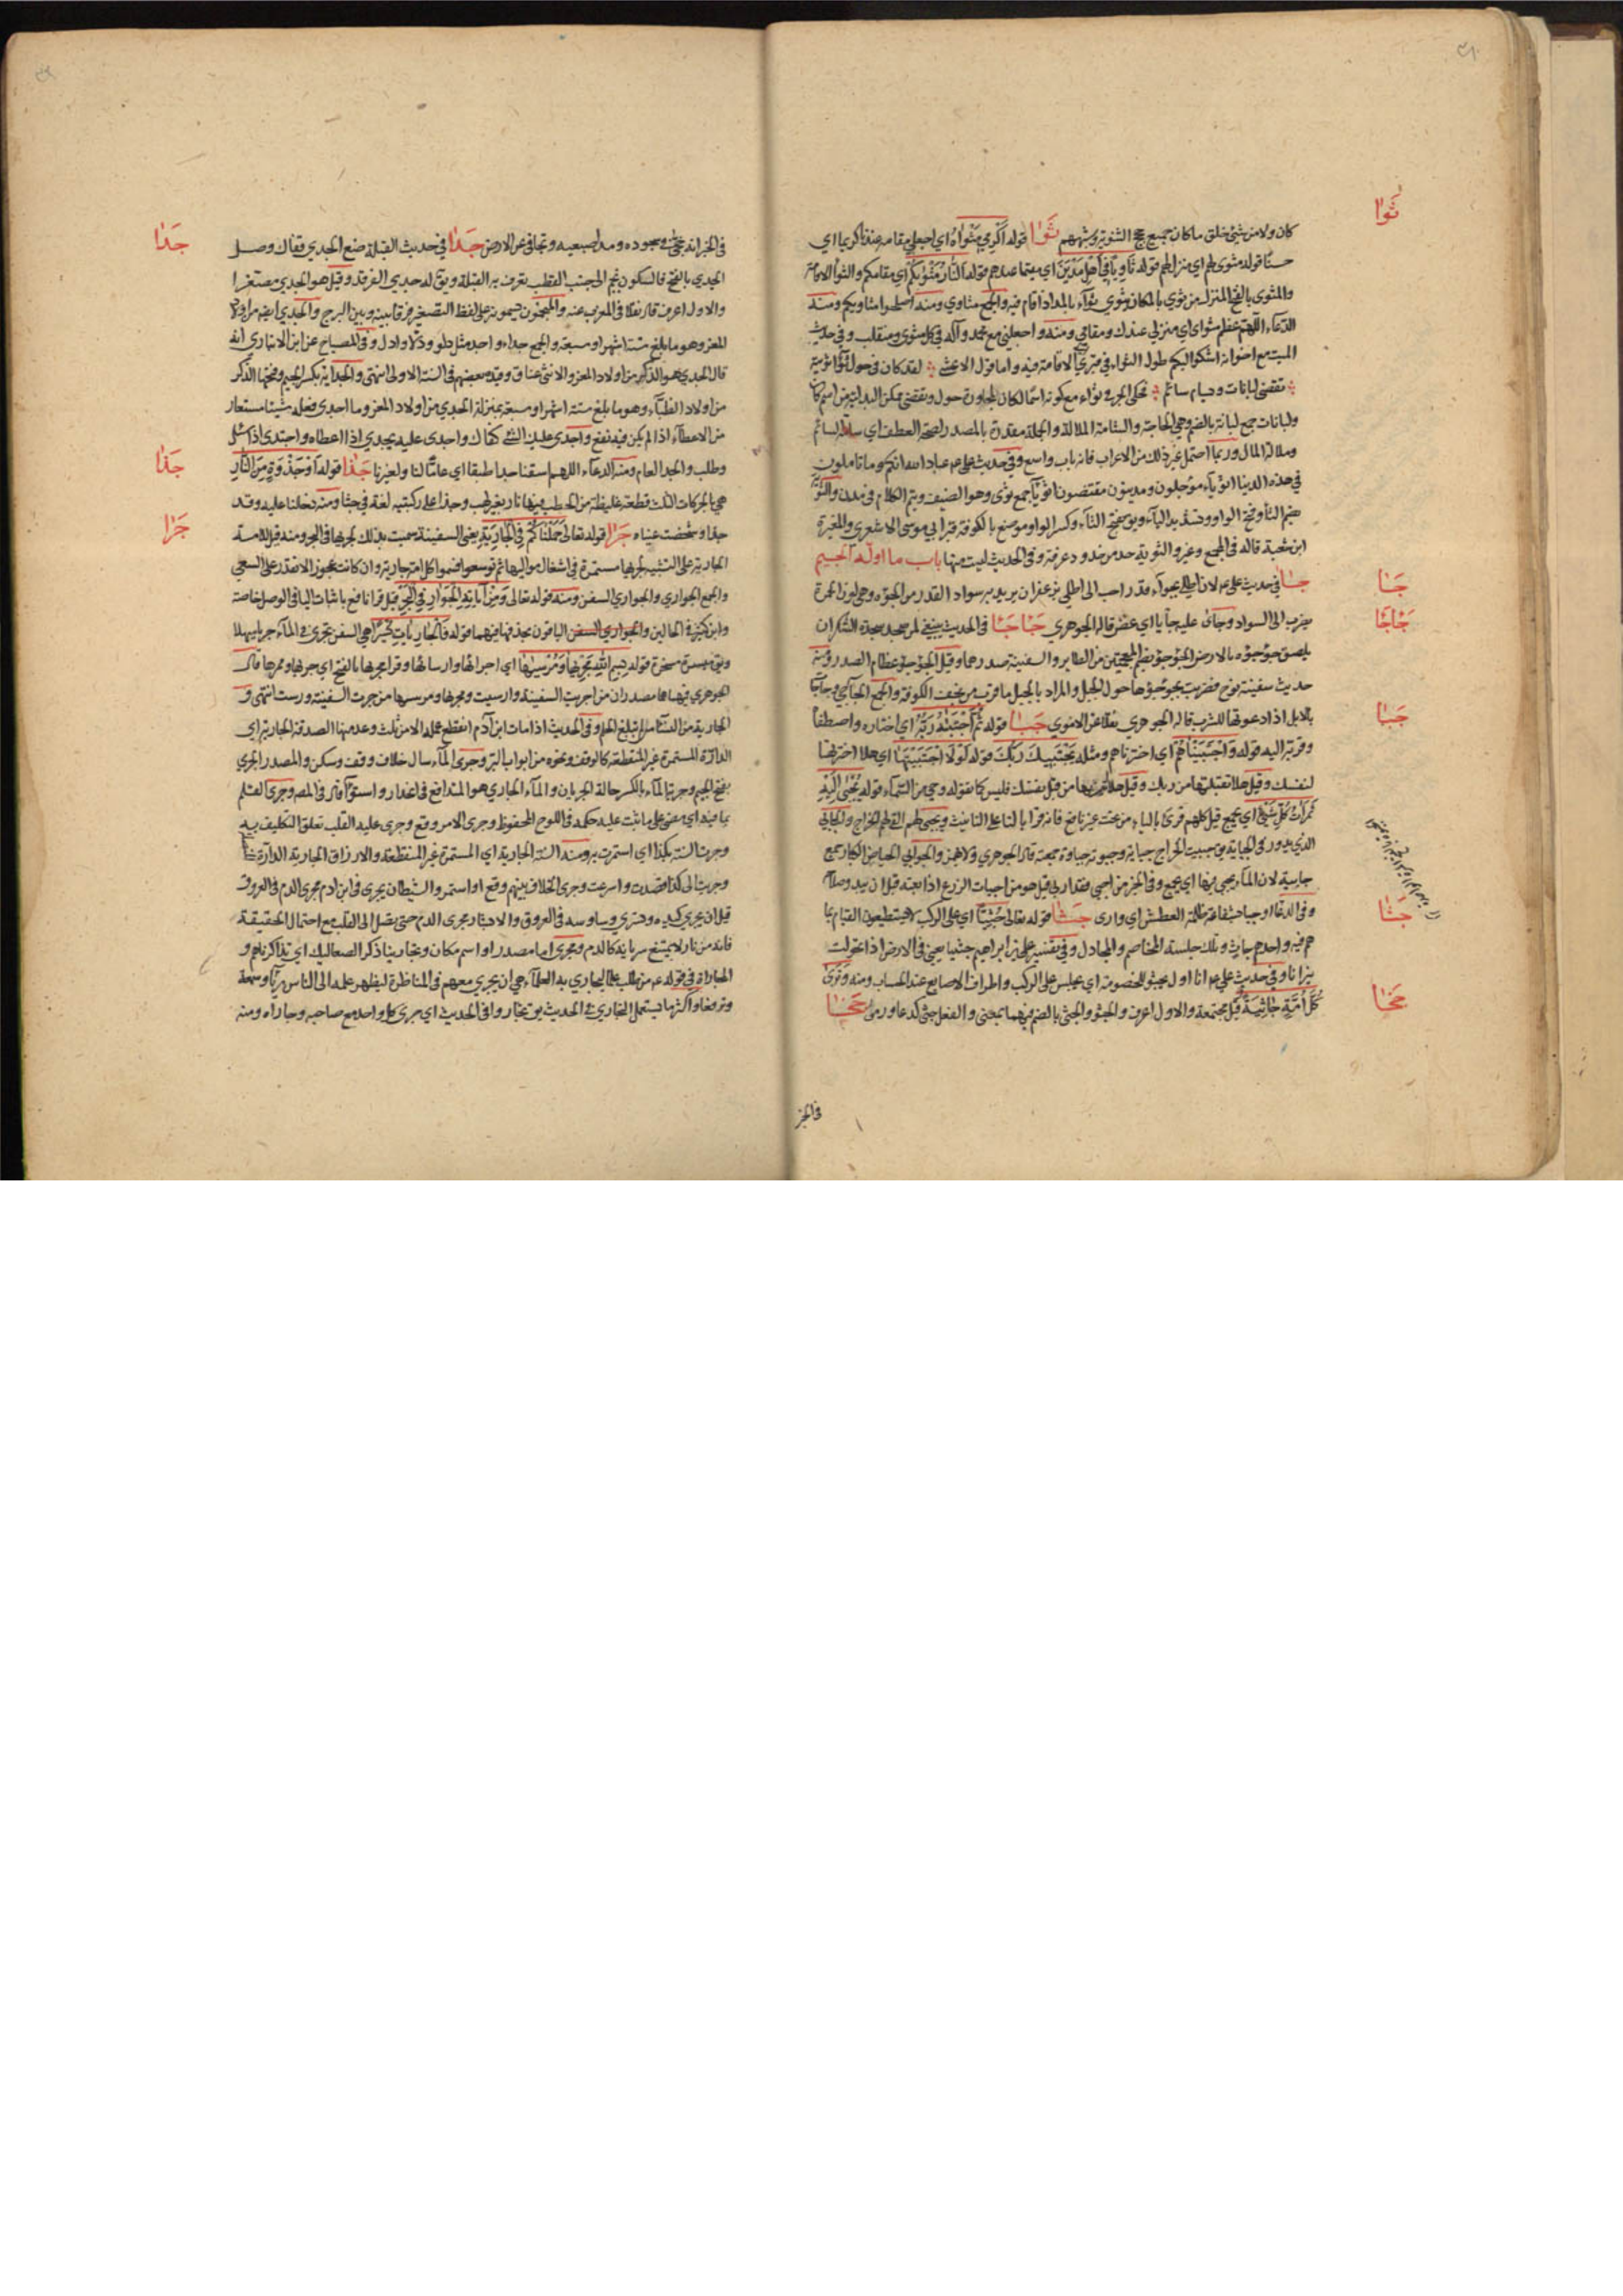 ثَوَا
كان ولا من شيء خلق ما كان جميع حجج الثنوية وشبههم ثَوَا قوله أَكْرِمِي مَثْوَاهُ اي اجعلي مقامه عندنا كريما اي
حسنا قوله مثوى لهم اي منزل لهم قوله ثَاوِيًا فِي أَهْلِ مَدْيَنَ اي مقيما عندهم قوله النَّارُ مَثْوٰيكُمْ اي مقامكم والثواء الاقامة
والمثوى بالفتح المنزل من ثوى بالمكان يثوي ثواء بالمد اذا اقام فيه والجمع مثاوي ومنه اصلحوا مثاويكم ومنه
الدعاء اللهم عظم مثواي اي منزلي عندك ومقامي ومنه واجعلني مع محمد وآله في كل مثوى ومنقلب وفي حديث
الميت مع اخوانه اشكو اليكم طول الثواء في قبري اي الاقامة فيه واما قول الاعشى لقد كان في حول ثواء ثويته
تقضي لبانات ويسأم سائم
ولبانات جمع لبانة بالضم وهي الحاجة والسئامة الملالة
وملالة المال وربما احتمل غير ذلك من الاعراب فانه باب واسع وفي حديث علي عم عباد الله انكم وما تأملون
في هذه الدنيا اثوياء مؤجلون ومدينون مقتضون اثوياء جمع ثوى وهو الضيف ويتم الكلام في مدن والثوية
بضم الثاء وفتح الواو وتشديد الياء ويق بفتح الثاء وكسر الواو موضع بالكوفة به قبر ابي موسى الاشعري والمغيرة
ابن شعبة قاله في المجمع وغيره والثوية حد من حدود عرفة وفي الحديث ليست منها باب ما اوله الجيم
جَئا
جئا في حديث علي عم لان اطلي بجواء قدر احب الي من ان اطلي بزعفران يريد به سواد القدر من الجؤوة وهي لون الحمرة
جَأجَأ
يضرب الى السواد وجأى عليه جأيا اي عض قاله الجوهري جَأجَأ في الحديث ينبغي لمن سجد سجدة الشكر ان
يلصق جؤجؤه بالارض الجؤجؤ بضم المعجمتين من الطاير والسفينة صدرهما وقيل الجؤجؤ عظام الصدر ومنه
حديث سفينة نوح فضربت بجؤجؤها حول الجبل والمراد بالجبل ما قرب من نجف الكوفة والجمع الجآجي وجأجأ
جَبَا
بالابل اذا دعوتها للشرب قاله الجوهري نقلا عن الاموي جَبَا قوله ثُمَّ اجْتَبٰهُ رَبُّهُ اي اختاره واصطفاه
وقربه اليه قوله وَاجْتَبَيْنَاهُمْ اي اخترناهم ومثله يَجْتَبِيكَ رَبُّكَ قوله لَوْلَا اجْتَبَيْتَهَا اي هلا اخترتها
لنفسك وقيل هلا تقبلتها من ربك وقيل هلا اتيت بها من قبل نفسك فليس كلما تقوله وحي من السماء قوله يُجْبٰى إِلَيْهِ
ثَمَرَاتُ كُلِّ شَيْءٍ اي يجمع قيل كلهم قرئ بالياء من تحت غير نافع فانه قرأ بالتاء على التانيث ويجبى لهم الفئ لهم الخراج والجابي
الذي يدور في الجباية يق جبيت الخراج جباية وجبوته جباوة جمعته قال الجوهري ولا يهمز والجوابي الحياض الكبار جمع
جابية لان الماء يجبى فيها اي يجمع وفي الخبر من اجبى فقد اربى قيل هو من اجبات الزرع اذا بعته قبل ان يبدو صلاحه
جَثَا
جَثَا قوله تعالى جُثِيًّا اي على الركب لا يستطيعون القيام بما
هم فيه واحدهم جاث وتلك جلسة المخاصم والمجادل وفي تفسير علي بن ابراهيم جثيا يعني في الارض اذا تحولت
نيرانا وفي حديث علي عم انا اول من يجثو للخصومة اي يجلس على الركب واطراف الاصابع عند الحساب ومنه وَتَرٰى
جَخَا
كُلَّ أُمَّةٍ جَاثِيَةً قيل مجتمعة والاول اعرف والجثو والجثي بالضم فيهما بمعنى والفعل جثى كدعا ورمى جَخَا
في الخبر
جَدَا
في الخبر انه جخى في سجوده ومد ضبعيه وتجافى عن الارض جَدَا في حديث القبلة ضع الجدي قفاك وصل
الجدي بالفتح فالسكون نجم الى جنب القطب تعرف به القبلة ويق له جدي الفرقد وقيل هو الجدي مصغرا
والاول اعرف قال نقلا في المغرب عنه والمنجمون يسمونه على لفظ التصغير فرقا بينه وبين البرج والجدي ايضم من اولاد
المعز وهو ما بلغ ستة اشهر او سبعة والجمع جداء واجد مثل دلو ودلاء وادل وفي المصباح عن ابن الانباري انه
قال الجدي هو الذكر من اولاد المعز والانثى عناق وقيده بعضهم في السنة الاولى انتهى والجداية بكسر الجيم وفتحها الذكر
من اولاد الظباء وهو ما بلغ ستة اشهر او سبعة بمنزلة الجدي من اولاد المعز وما اجدى فعله شيئا مستعار
من الاعطاء اذا لم يكن فيه نفع واجدى عليك الشيء كفاك واجدى عليه يجدي اذا اعطاه واجتدى اذا سئل
جَذَا
وطلب والجدا العام ومنه الدعاء اللهم اسقنا جدا طبقا اي عاما لنا ولغيرنا جَذَا قوله أَوْ جَذْوَةٍ مِنَ النَّارِ
هي بالحركات الثلث قطعة غليظة من الحطب فيها نار بغير لهب وجذا على ركبتيه لغة في جثا ومنه دخلنا عليه وقد
جَرَا
جذا وشخصت عيناه جَرَا قوله تعالى حَمَلْنَاكُمْ فِي الْجَارِيَةِ يعني السفينة سميت بذلك لجريها في البحر ومنه قيل للامة
الجارية على التشبيه لجريها مستمرة في اشغال مواليها ثم توسعوا فسموا كل امة جارية وان كانت عجوزا لا تقدر على السعي
والجمع الجواري والجواري السفن ومنه قوله تعالى وَمِنْ آيَاتِهِ الْجَوَارِ فِي الْبَحْرِ قيل قرأ نافع باثبات اليا في الوصل خاصة
وابن كثير في الحالين والباقون بحذفها فيهما قوله فَالْجَارِيَاتِ يُسْرًا هي السفن تجري في الماء جريا سهلا
ويق ميسرة مسخرة قوله بِسْمِ اللهِ مَجْرٰيهَا وَمُرْسٰيهَا اي اجراءها وارساءها وقرئ مجريها بالفتح اي جريها وممرها قال
الجوهري فيهما هما مصدران من اجريت السفينة وارسيت ومجريها ومرسيها من جرت السفينة ورست انتهى و
الجارية من النساء من لم تبلغ الحلم وفي الحديث اذا مات ابن آدم انقطع عمله الا من ثلث وعد منها الصدقة الجارية اي
الدارة المستمرة غير المنقطعة كالوقف ونحوه من ابواب البر وجرى الماء سال خلاف وقف وسكن والمصدر الجري
بفتح الجيم وجرية الماء بالكسر حالة الجريان والماء الجاري هو المتدافع في انحدار واستواء قاله في المص وجرى القلم
بما فيه اي مضى على ما ثبت عليه حكمه في اللوح المحفوظ وجرى الامر وقع وجرى عليه القلم تعلق التكليف به
وجرت السنة بكذا اي استمرت به ومنه السنة الجارية اي المستمرة غير المنقطعة والارزاق الجارية الدارة
وجريت الى كذا قصدت واسرعت وجرى الخلاف بينهم وقع او استمر والشيطان يجري في ابن ادم مجرى الدم في العروق
قيل ان يجري كيده وتسري وساوسه في العروق والابشار مجرى الدم حتى يصل الى القلب مع احتمال الحقيقة
فانه من نار لا يمتنع سريانه كالدم ومجرى اما مصدر او اسم مكان وتجارينا ذكر الصعاليك اي تذاكرناهم و
المجاراة في قوله عم من طلب علما ليجاري به العلماء هي ان يجري معهم في المناظرة ليظهر علمه الى الناس رياء وسمعة
وترفعا واكثر ما يستعمل التجاري في الحديث يق تجاروا في الحديث اي جرى كل واحد مع صاحبه وجاراه ومنه